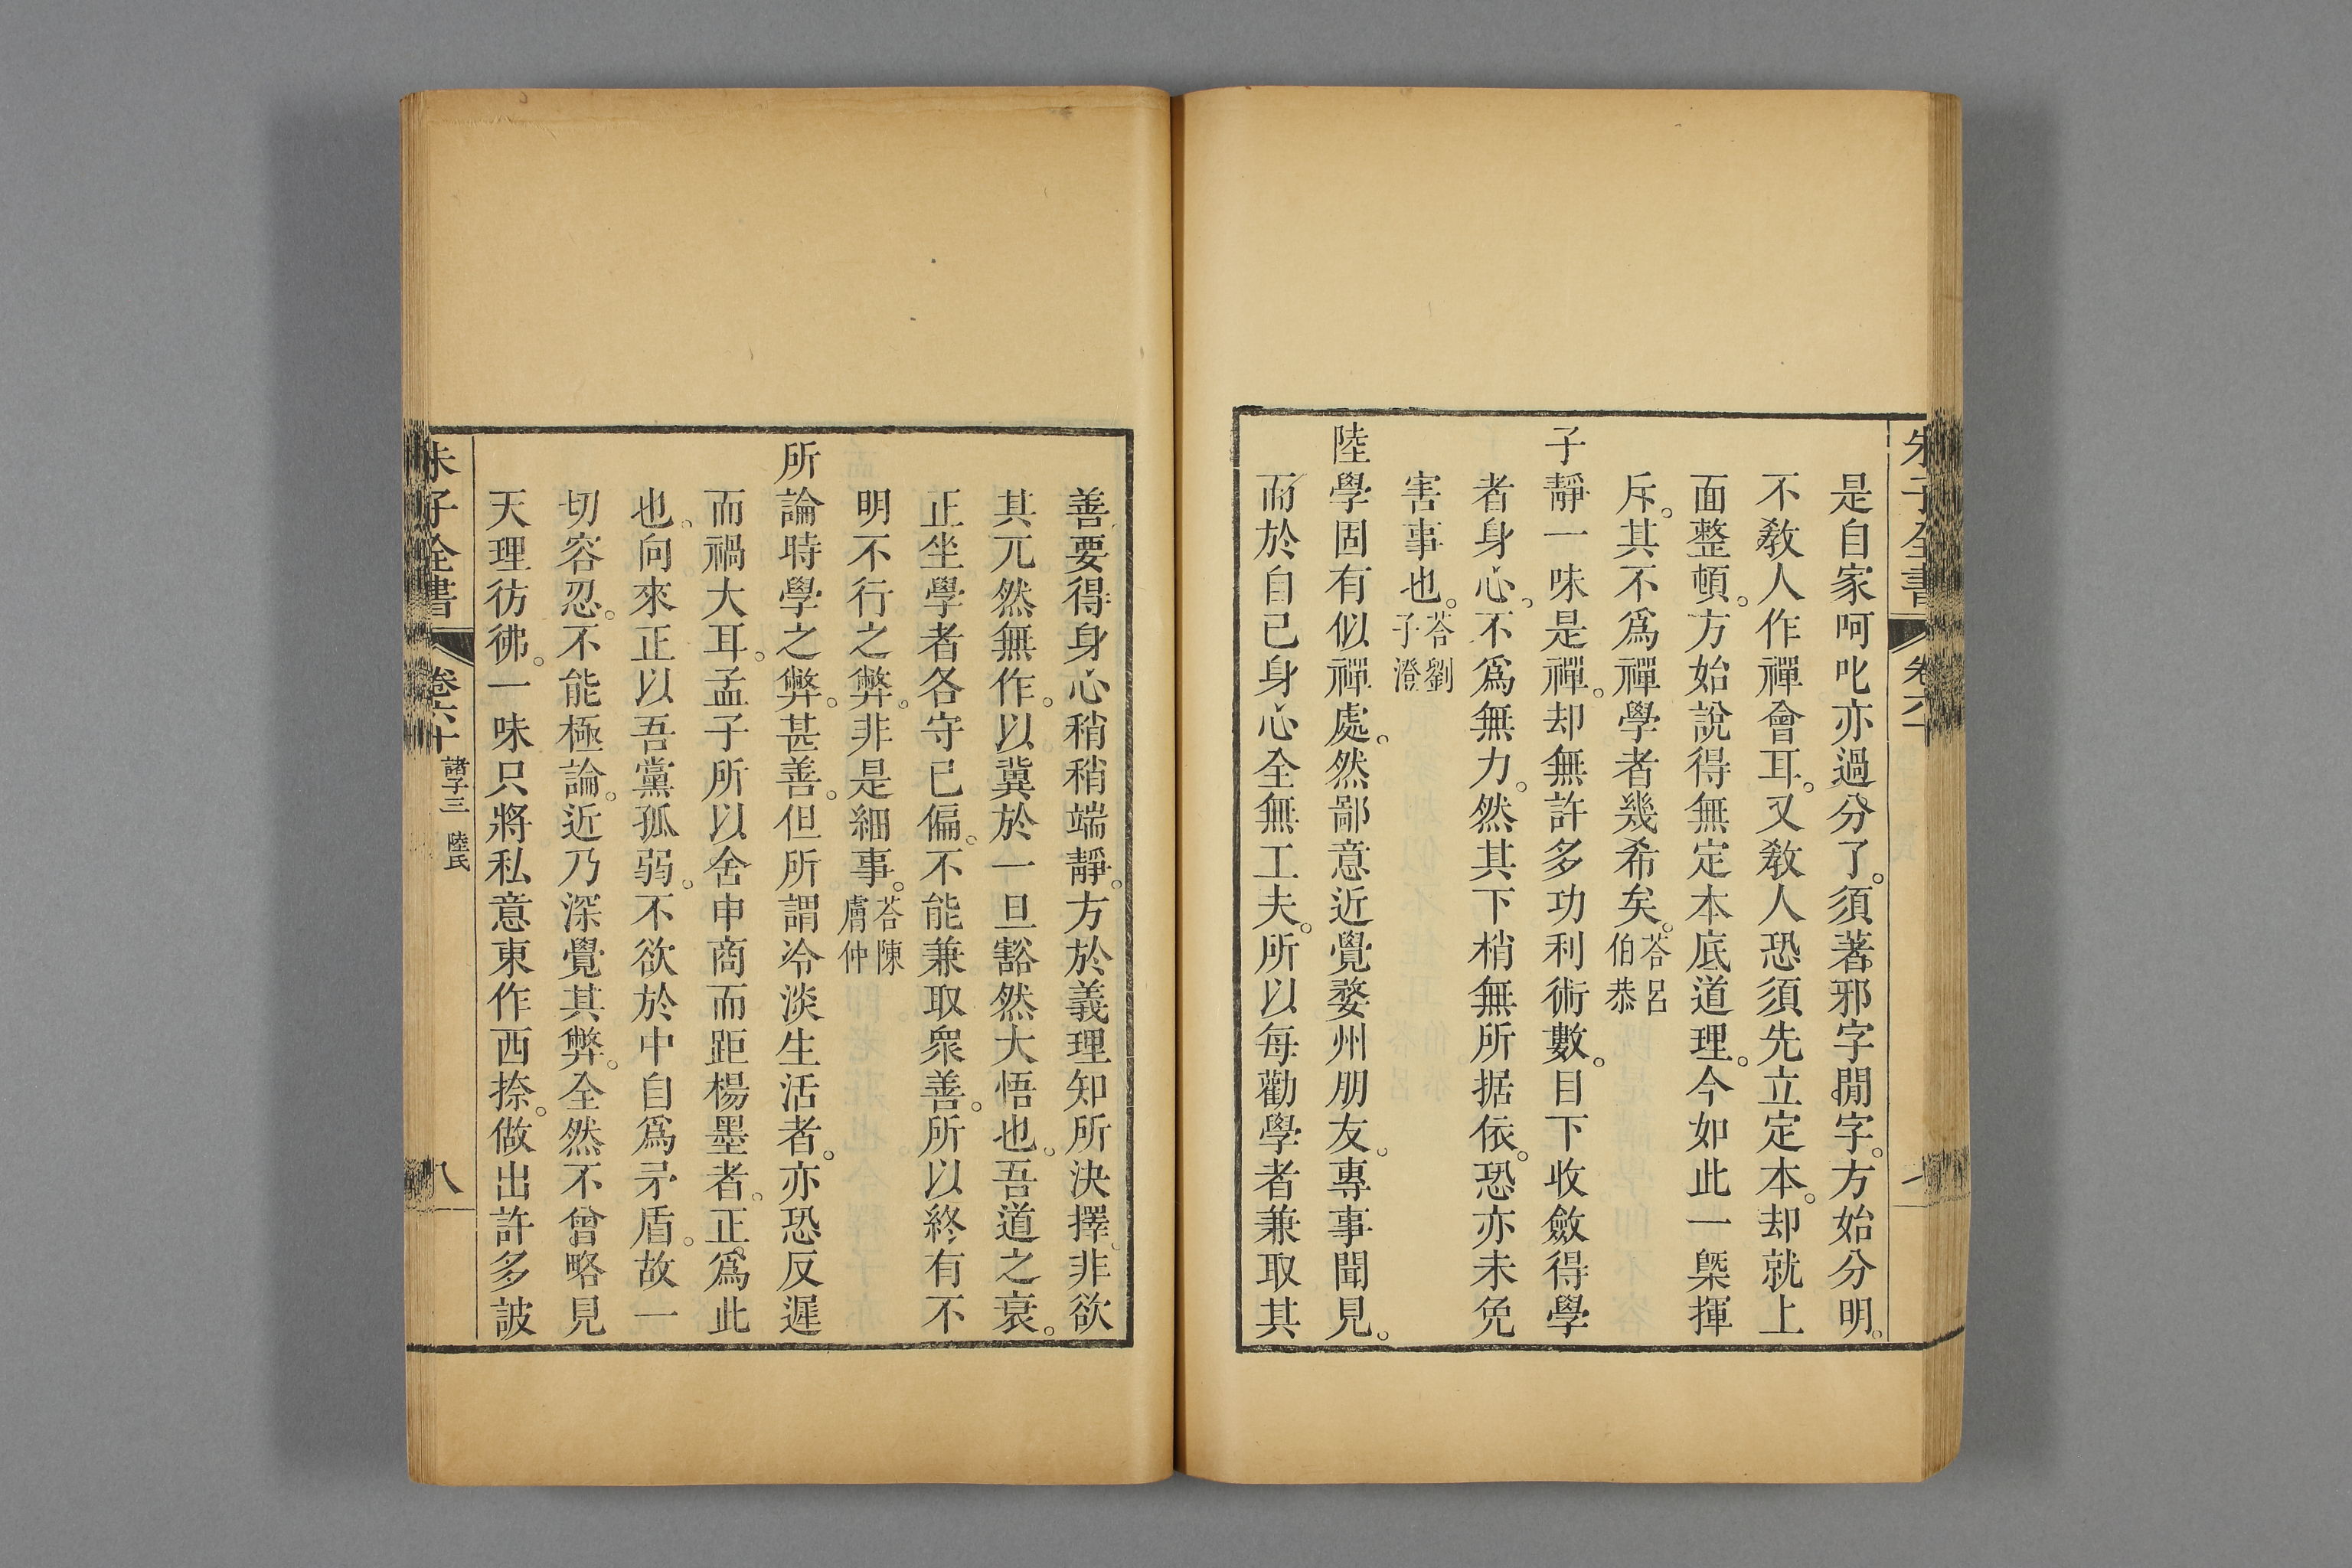 朱子全書
卷六十
是自家呵叱亦過分了。須著邪字閒字。方始分明。
不敎人作禪會耳。又敎人恐須先立定本。却就上
面整頓。方始說得無定本底道理。今如此一槩揮
斥。其不爲禪學者幾希矣。荅呂伯恭
子靜一味是禪。却無許多功利術數。目下收斂得學
者身心。不爲無力。然其下梢無所据依。恐亦未免
害事也。荅劉子澄
陸學固有似禪處。然鄙意近覺婺州朋友。專事聞見。
而於自己身心全無工夫。所以每勸學者兼取其
善。要得身心稍稍端靜。方於義理知所決擇。非欲
其兀然無作。以冀於一旦豁然大悟也。吾道之衰。
正坐學者各守已偏。不能兼取衆善。所以終有不
明不行之弊。非是細事。荅陳膚仲
所論時學之弊。甚善。但所謂冷淡生活者。亦恐反遲
而禍大耳。孟子所以舍申商而距楊墨者。正爲此
也。向來正以吾黨孤弱。不欲於中自爲矛盾。故一
切容忍。不能極論。近乃深覺其弊。全然不曾略見
天理彷彿。一味只將私意東作西捺。做出許多詖
朱子全書
卷六十
諸子三 陸氏
八